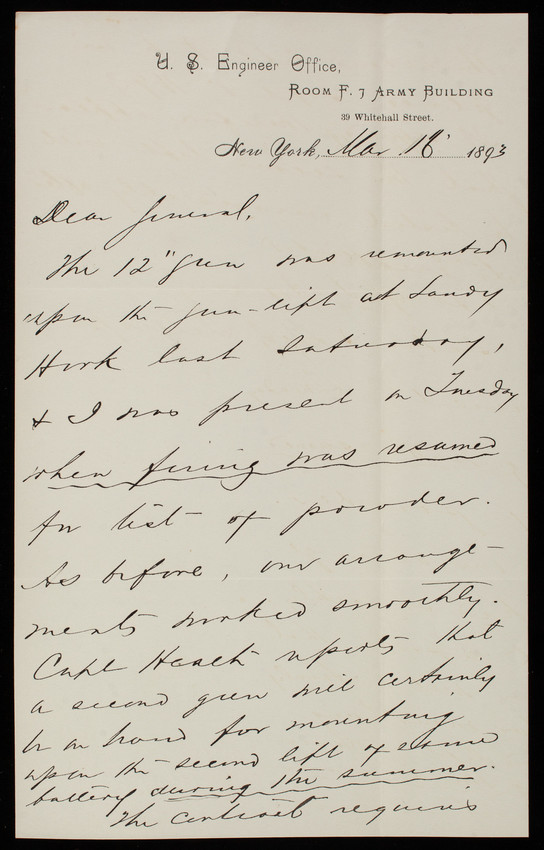 U. S. Engineer Office,
Room F. 7 Army Building
39 Whitehall Street.
New York, Mar 16 1893
Dear General,
The 12" gun was remounted
upon the gun-lift at Sandy
Hook last Saturday,
& I was present on Tuesday
when firing was resumed
for test of powder.
As before, our arrange-
ments worked smoothly.
Capt Heath reports that
a second gun will certainly
be on hand for mounting
upon the second lift of same
battery during the summer.
The contract requires